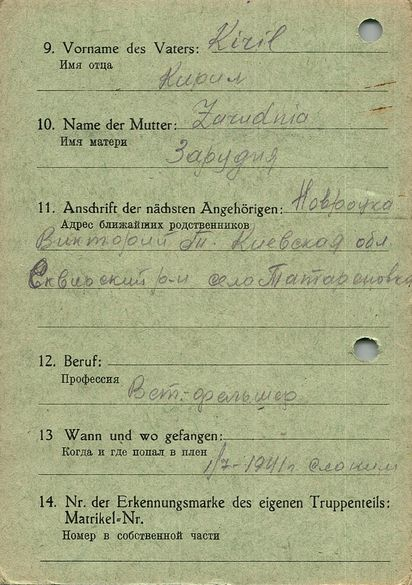 9. Vorname des Vaters: Kiril
Имя отца
Кирил
10. Name der Mutter: Zarudnia
Имя матери
Зарудня
11. Anschrift der nächsten Angehörigen:
Адрес ближайших родственников
Викторий Т. Киевская обл
Сквирский р-н село Татариновка
12. Beruf:
Профессия
Вет. фельшер
13 Wann und wo gefangen:
Когда и где попал в плен
1/7-1941г Слоним
14. Nr. der Erkennungsmarke des eigenen Truppenteils:
Matrikel=Nr.
Номер в собственной части